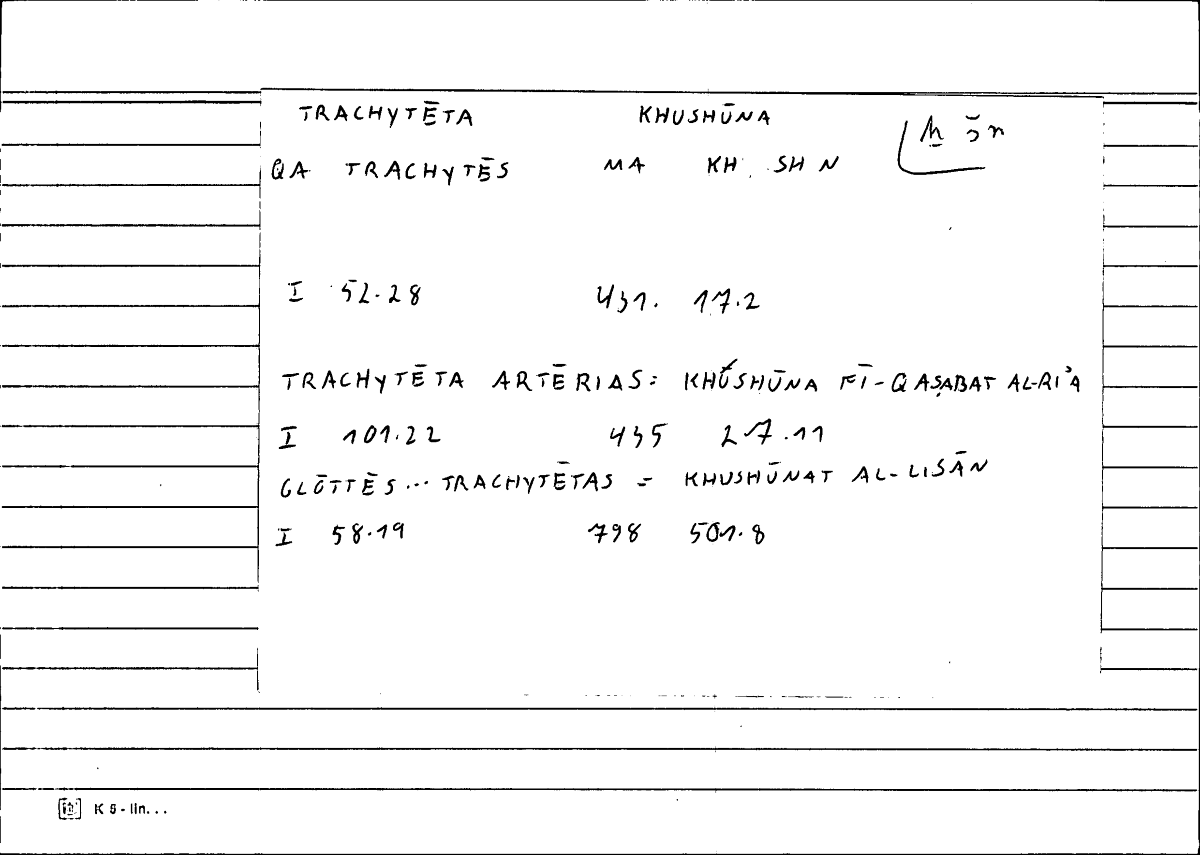 TRACHYTĒTA KHUSHŪNA
QA TRACHYTĒS MA KH SH N
I 52.28 431. 17.2
TRACHYTĒTA ARTĒRIAS = KHUSHŪNA FĪ-QAṢABAT AL-RI'A
I 101.22 435 27.11
GLŌTTĒS... TRACHYTĒTAS = KHUSHŪNAT AL-LISĀN
I 58.19 798 501.8
K 5 - lin...